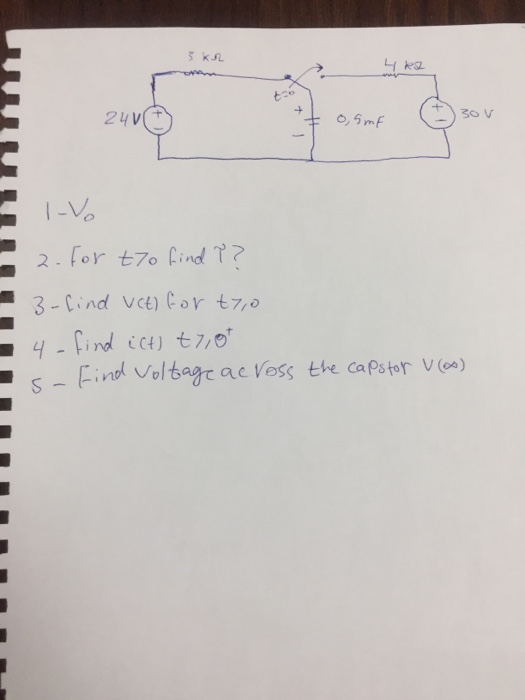 3 kΩ
4 kΩ
t=0
24V
+
-
+
-
0,5mf
+
-
30 V
1-V₀
2. For t>0 find τ?
3-find v(t) for t>,0
4 - find i(t) t>,0⁺
5 - Find Voltage across the capstor V(∞)